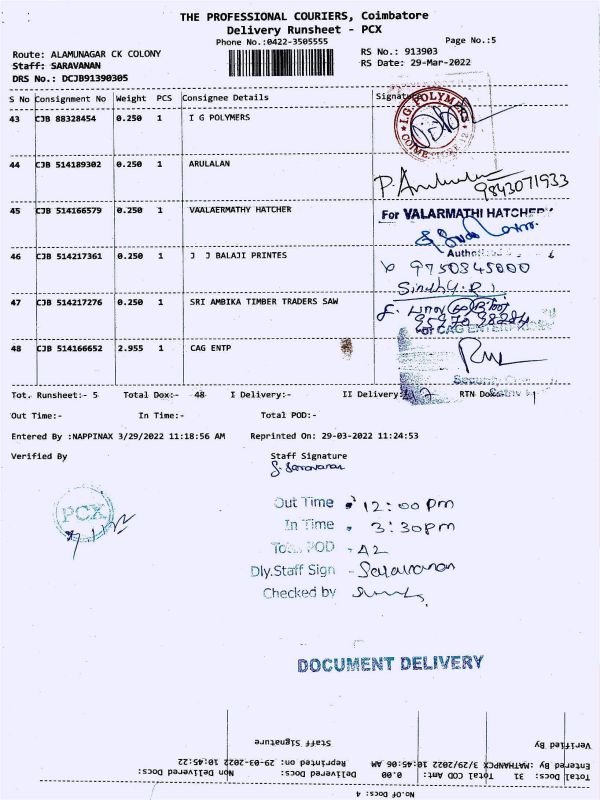 THE PROFESSIONAL COURIERS, Coimbatore
Delivery Runsheet - PCX
Phone No.:0422-3505555
Page No.:5
Route: ALAMUNAGAR CK COLONY
RS No.: 913903
Staff: SARAVANAN
RS Date: 29-Mar-2022
DRS No.: DCJB91390305
S No Consignment No Weight PCS Consignee Details Signature
43 CJB 88328454 0.250 1 I G POLYMERS
I.G. POLYMERS
44 CJB 514189302 0.250 1 ARULALAN
9843071933
45 CJB 514166579 0.250 1 VAALAERMATHY HATCHER
For VALARMATHI HATCHERY
46 CJB 514217361 0.250 1 J J BALAJI PRINTES
9750845000
47 CJB 514217276 0.250 1 SRI AMBIKA TIMBER TRADERS SAW
48 CJB 514166652 2.955 1 CAG ENTP
Tot. Runsheet:- 5 Total Dox:- 48 I Delivery:- II Delivery: RTN Dox:
Out Time:- In Time:- Total POD:-
Entered By :NAPPINAX 3/29/2022 11:18:56 AM Reprinted On: 29-03-2022 11:24:53
Verified By Staff Signature
S. Saravanan
PCX
Out Time 12:00 pm
In Time 3:30pm
Total POD - 42
Dly.Staff Sign - Saravanan
Checked by
DOCUMENT DELIVERY
Verified By Staff Signature
Entered By :MATHANPCX 3/29/2022 10:45:06 AM Reprinted on: 29-03-2022 10:45:22
Total Docs: 31 Total COD Amt: 0.00 Delivered Docs: Non Delivered Docs:
No.Of Docs: 4